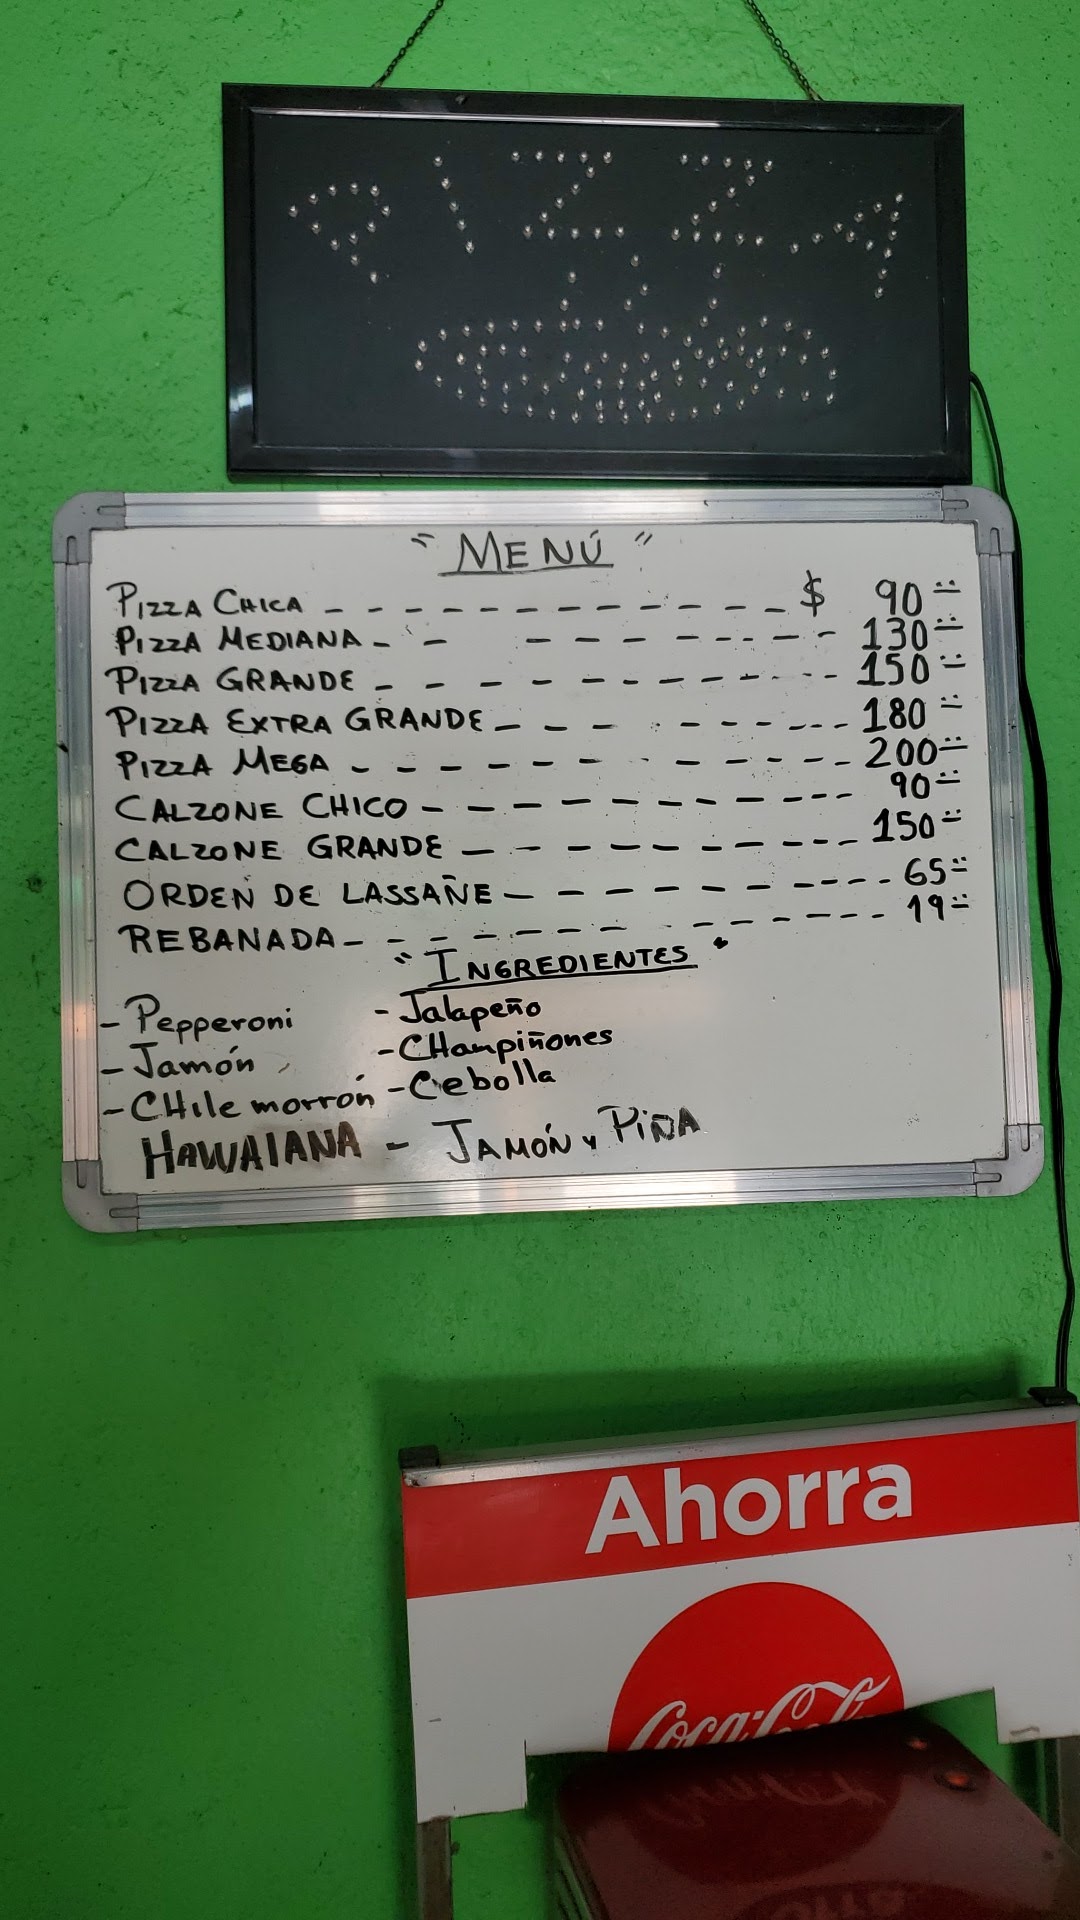 PIZZA
"MENÚ"
PIZZA CHICA - - - - - - - - - - - - $ 90=
PIZZA MEDIANA - - - - - - - - - - - 130=
PIZZA GRANDE - - - - - - - - - - - - 150=
PIZZA EXTRA GRANDE - - - - - - - - - 180=
PIZZA MEGA - - - - - - - - - - - - - 200=
CALZONE CHICO - - - - - - - - - - - - 90=
CALZONE GRANDE - - - - - - - - - - - 150=
ORDEN DE LASSAÑE - - - - - - - - - - 65=
REBANADA - - - - - - - - - - - - - - 19=
"INGREDIENTES"
- Pepperoni - Jalapeño
- Jamón - CHampiñones
- CHile morrón - Cebolla
HAWAIANA - JAMÓN Y PIÑA
Ahorra
Coca-Cola